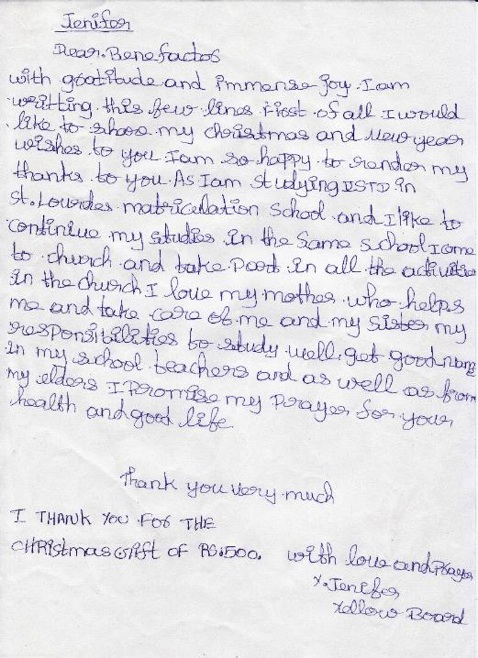 Jenifer
Dear. Benefactos
with gratitude and immense joy. I am
writting this few lines First of all I would
like to shose my christmas and New year
wishes to you I am so happy to render my
thanks to you. As I am studying in
St. Lourdes matriculation School and I like to
continue my studies in the same school I come
to church and take Paot in all the activitie
in the church I love my mother who helps
me and take care of me and my sister my
responsibilities to study well get good
in my school teachers and as well as from
my elders I Promise my Prayer for your
health and good life
Thank you very much
I THANK YOU FOR THE
CHRIStmas Gift of RS.500.
with love and Prayer
Y. Jenifer
Yellow Board